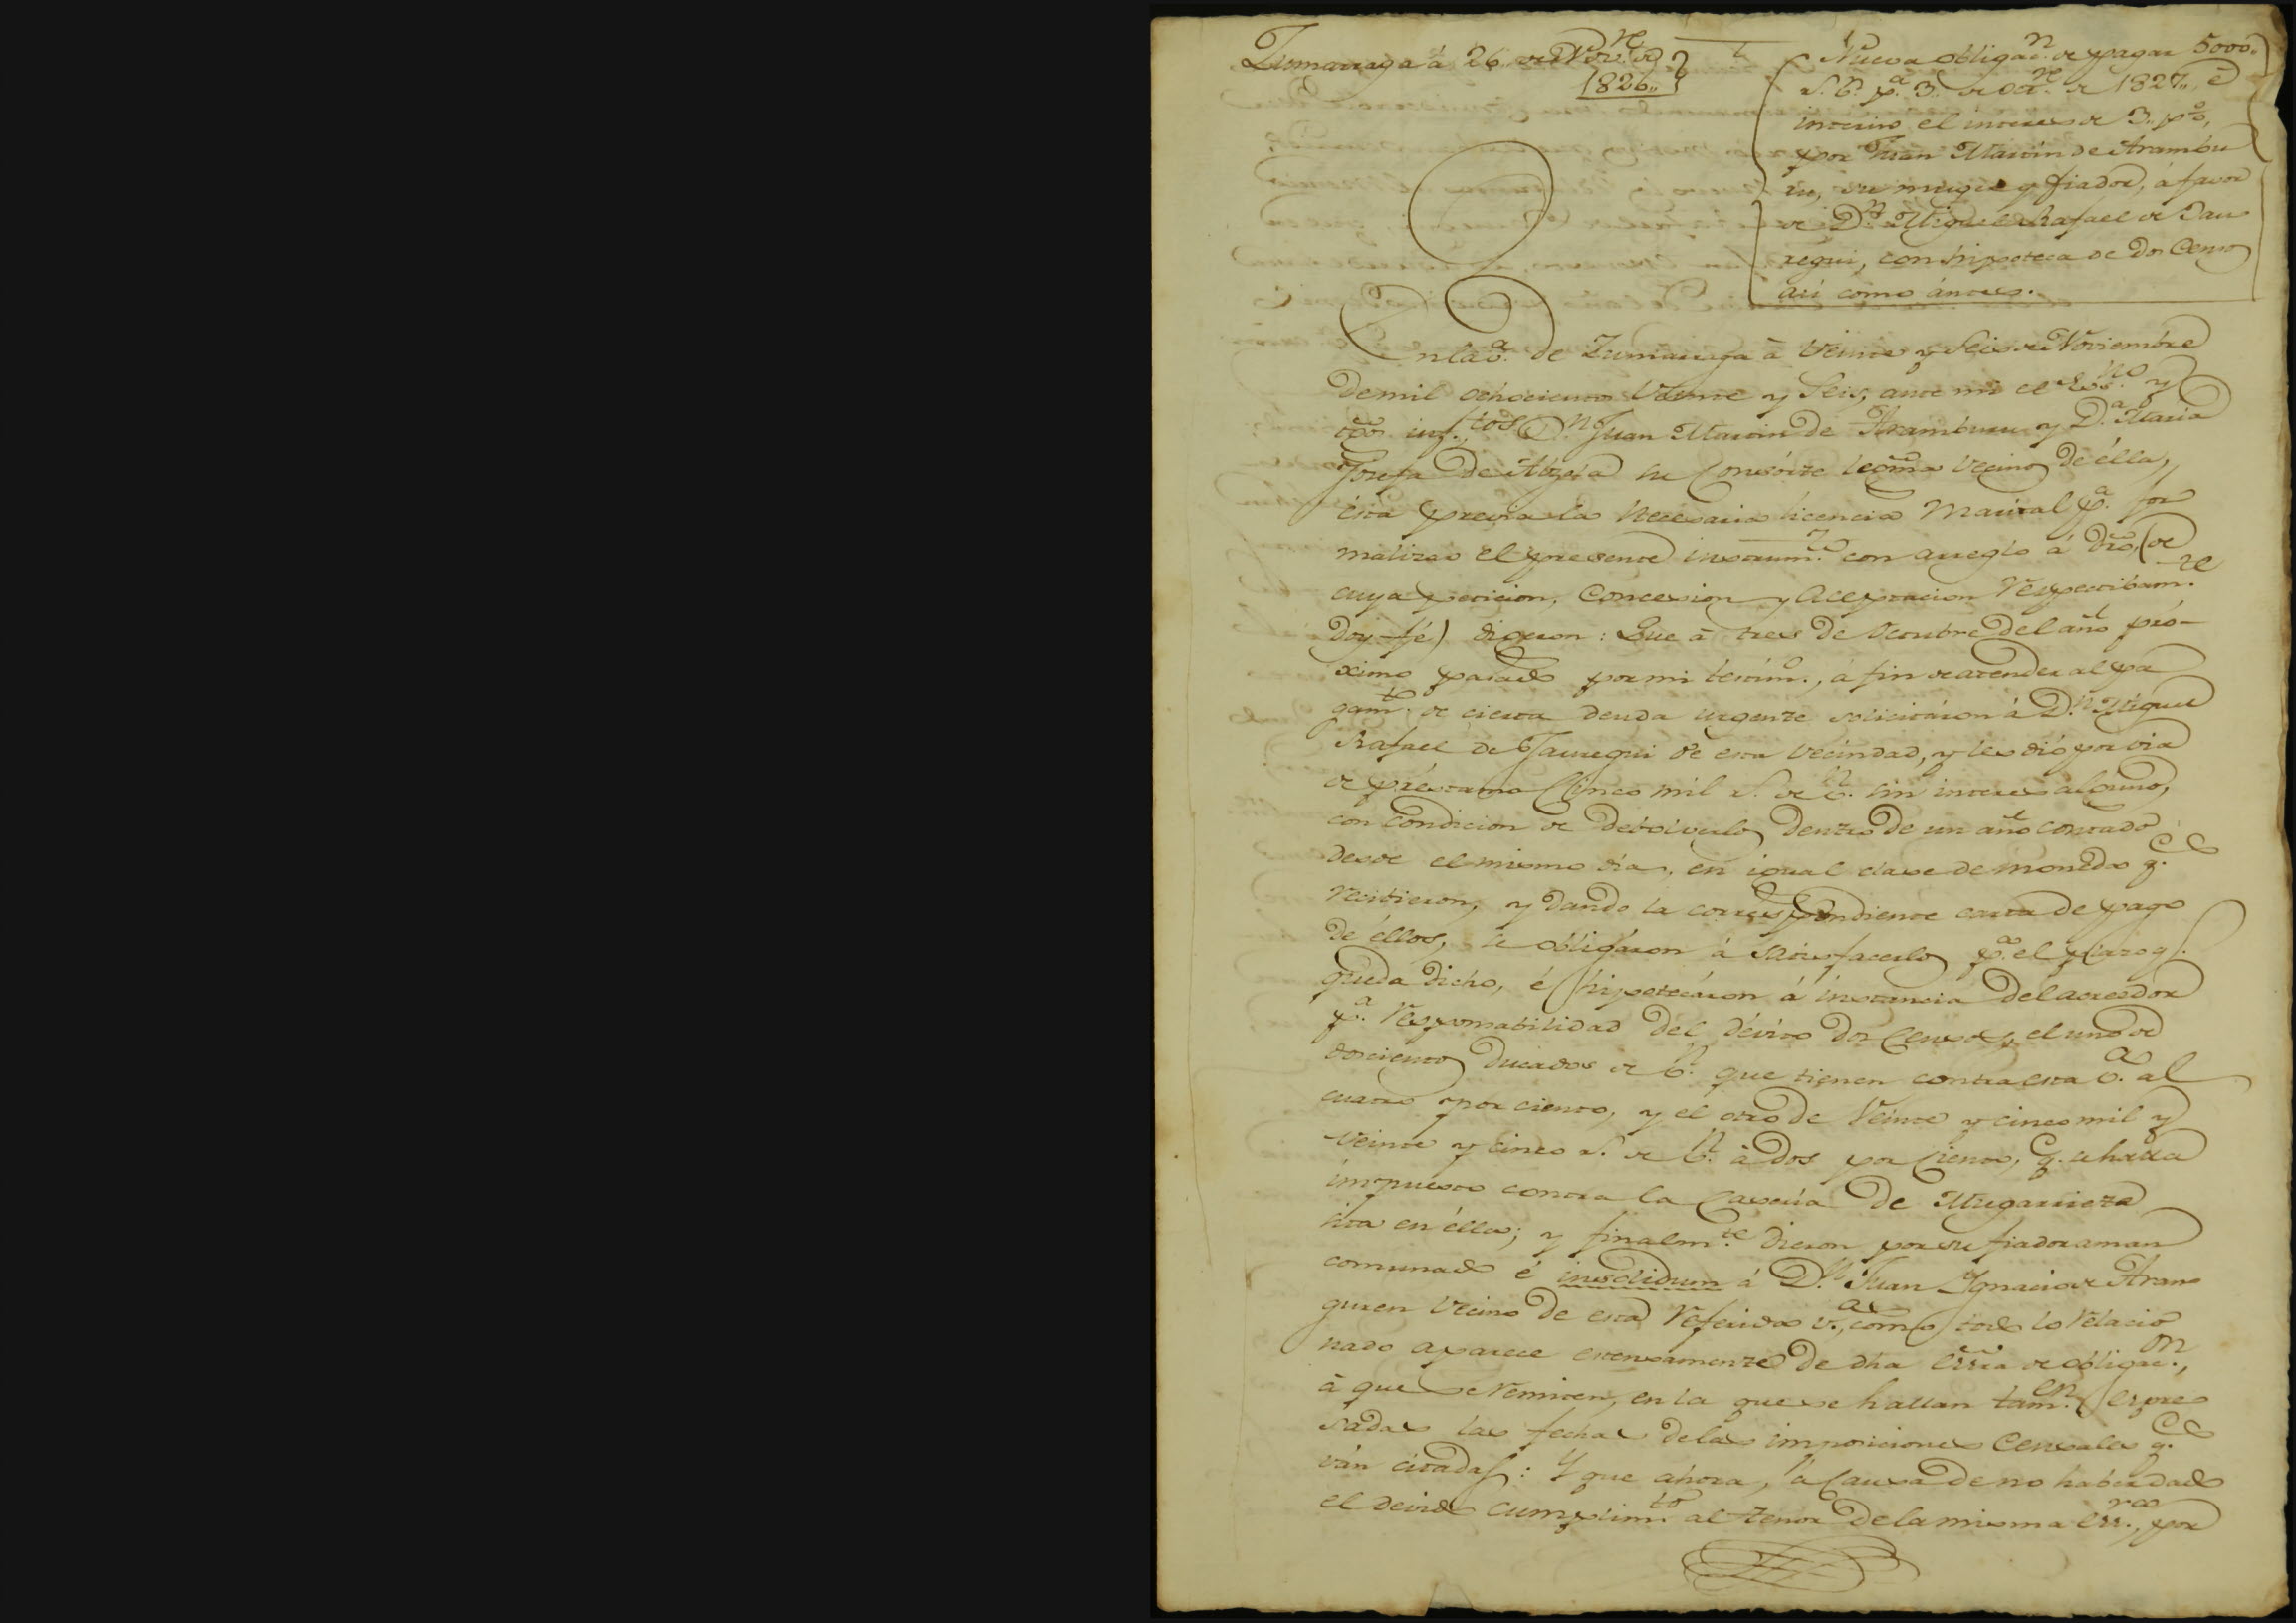 Zumarraga á 26 de Nov.e de
1826,,
Nueva obligac.n de pagar 5000.
r.s v.n p.a 3. de Oct.e de 1827,, é
interino el interes de 3. p.%,
por Juan Martin de Arambu
ru, su muger y fiador, á favor
de D.n Miguel Rafael de Jau
regui, con hipoteca de dos Censos
asi como ántes.
En la v.a de Zumarraga á veinte y seis de Noviembre
de mil ochocientos veinte y seis, ante mi el Ess.no y
tgos inf.tos D.n Juan Martin de Aramburu y D.a Maria
Josefa de Alzola su Consorte legma vecinos de élla,
ésta previa la necesaria licencia marital p.a for
malizar el presente instrum.to con arreglo á dro, (de
cuya peticion, concesion y aceptacion respectibam.te
doy fé) digeron: Que á tres de Octubre del año pró-
ximo pasado por mi testim.o, á fin de atender al pa
gam.to de cierta deuda urgente solicitáron á D.n Miguel
Rafael de Jauregui de esta vecindad, y les dió por via
de préstamo Cinco mil r.s de v.n sin interes alguno,
con condicion de debolverlos dentro de un año contado
desde el mismo dia, en igual clase de moneda q.e
recibieron, y dando la correspondiente carta de pago
de éllos, se obligáron á satisfacerlos p.a el plazo q.
queda dicho, é hipotecáron á instancia del acreedor
p.a responsabilidad del dévito dos Censos, el uno de
doscientos ducados de v.n que tienen contra esta v.a al
cuatro por ciento, y el otro de veinte y cinco mil y
veinte y cinco r.s de v.n á dos por ciento, q. se halla
impuesto contra la Caseria de Mugarrieta
sita en élla; y finalm.te dieron por su fiador aman
comunado é insolidum á D.n Juan Ygnacio de Aran
guren vecino de esta referida v.a, como todo lo relacio
nado aparece estensamente de dha Essra de obligac.on,
á que se remiten, en la que se hallan tam.en espre
sadas las fechas de las imposiciones Censales q.e
ván citadas: Y que ahora, á causa de no haber dado
el devido cumplim.to al tenor de la misma Ess.ra, por